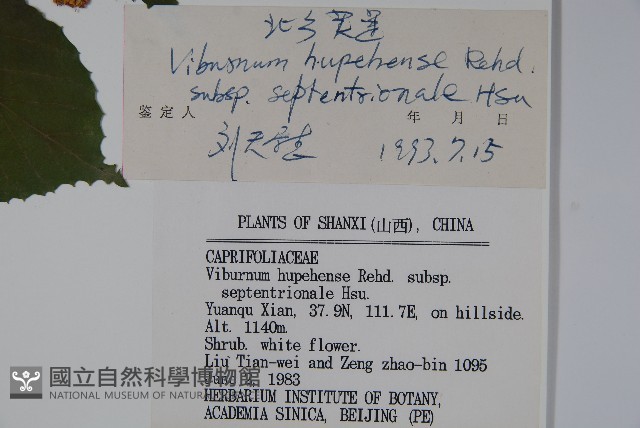 北方荚蒾
Viburnum hupehense Rehd.
subsp. septentrionale Hsu
鉴定人 年 月 日
1993.7.15
PLANTS OF SHANXI(山西), CHINA
CAPRIFOLIACEAE
Viburnum hupehense Rehd. subsp.
septentrionale Hsu.
Yuanqu Xian, 37.9N, 111.7E, on hillside.
Alt. 1140m.
Shrub. white flower.
Liu Tian-wei and Zeng zhao-bin 1095
1983
HERBARIUM INSTITUTE OF BOTANY,
ACADEMIA SINICA, BEIJING (PE)
國立自然科學博物館
NATIONAL MUSEUM OF NATURAL